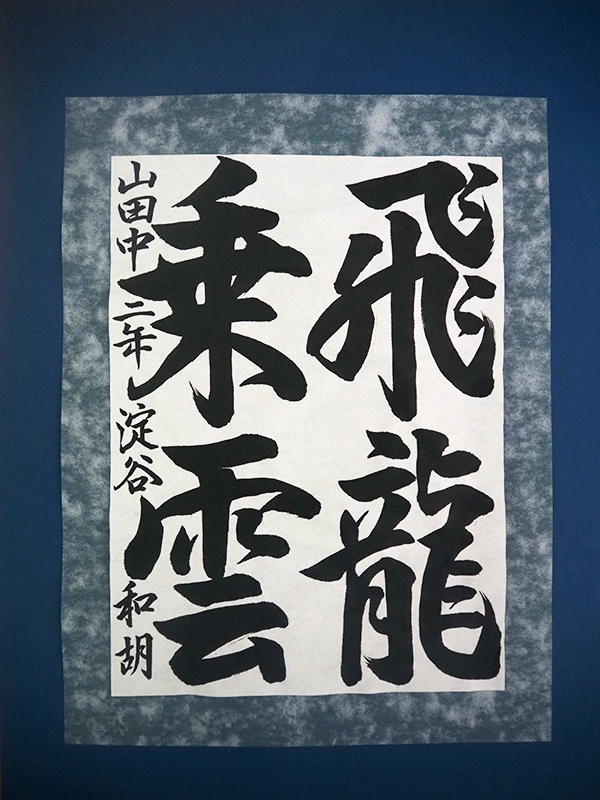 飛龍
乗雲
山田中二年 淀谷和胡